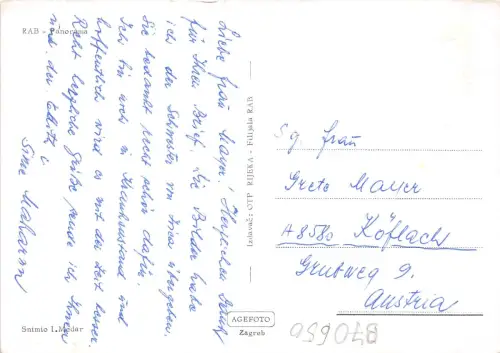 RAB - Panorama
Liebe Frau Mayer! Herzlichen Dank
für Ihren Brief. Die Bilder habe
ich der Schwester von Ihnen übergeben.
Sie bedankt sich recht schön dafür.
Ich bin noch in Krankenstand und
hoffentlich wird es mit der Zeit besser.
Recht herzliche Grüße sende ich Ihnen
und der
Snimio I. Medar
Izdavač: GTP RIJEKA - Filijala RAB
AGEFOTO
Zagreb
Sg. Frau
Grete Mauer
A 8580 Köflach
Grubweg 9.
Austria
870659